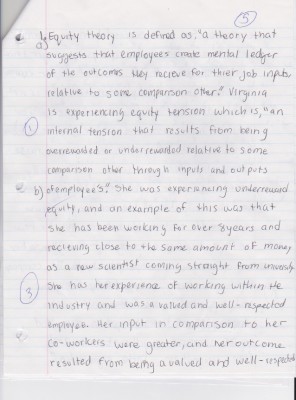 5
1a) Equity theory is defined as, "a theory that
suggests that employees create mental ledger
of the outcomes they recieve for thier job inputs
relative to some comparison other." Virginia
is experiencing equity tension which is, "an
internal tension that results from being
overrewarded or underrewarded relative to some
comparison other through inputs and outputs
b) of employee's." She was experiencing underreward
equity, and an example of this was that
she has been working for over 8 years and
recieving close to the same amount of money
as a new scientist coming straight from university.
She has her experience of working within the
industry and was a valued and well-respected
employee. Her input in comparison to her
co-workers were greater, and her outcome
resulted from being a valued and well-respected
1
3